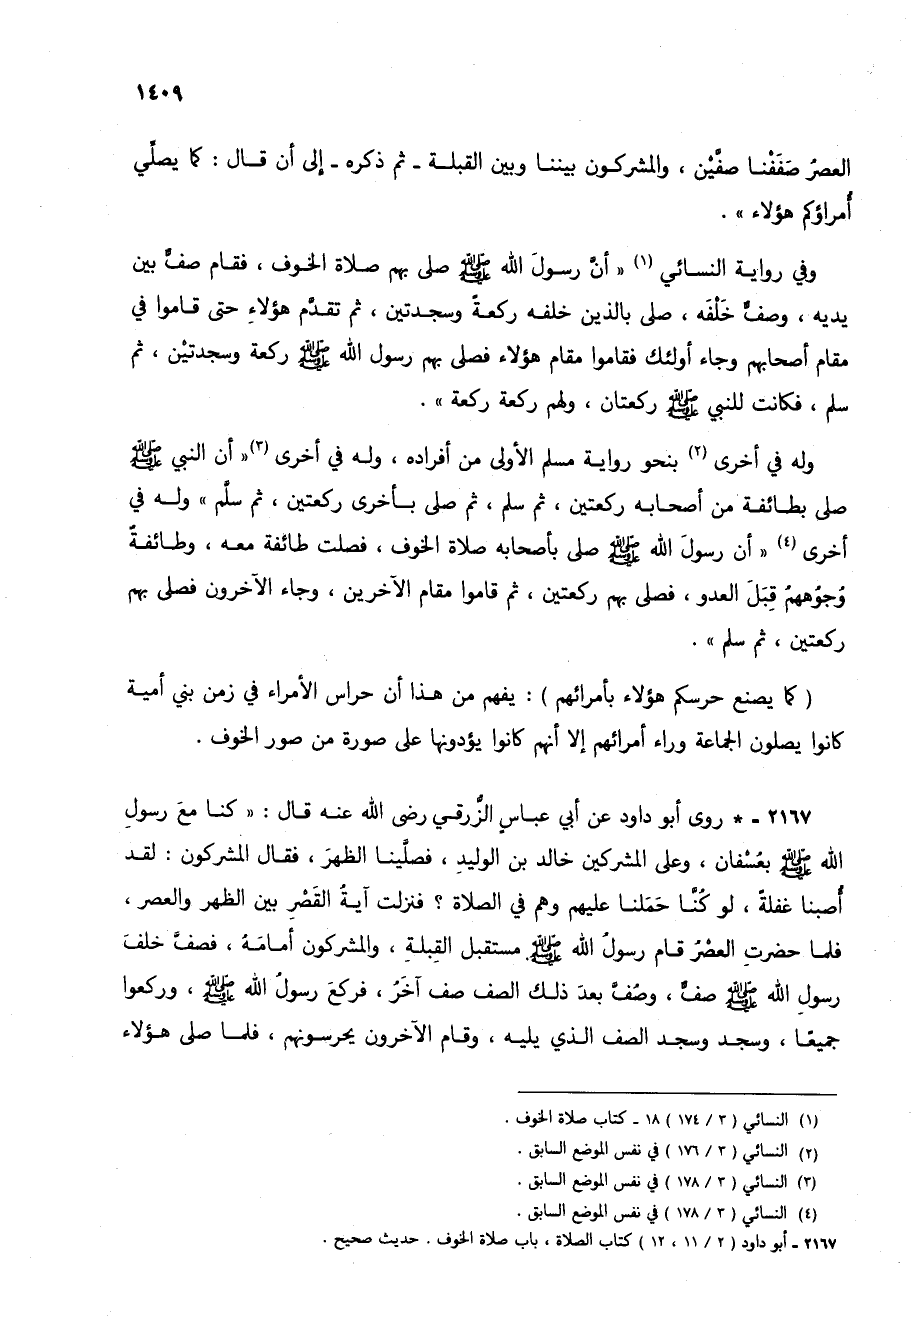 ١٤٠٩
العصرُ صَفَفْنا صفَّيْن ، والمشركون بيننا وبين القبلة ـ ثم ذكره ـ إلى أن قال : كما يصلِّي
أُمراؤكم هؤلاء » .
وفي رواية النسائي (١) « أنَّ رسولَ الله ﷺ صلى بهم صلاة الخوف ، فقام صفٌّ بين
يديه ، وصفٌّ خَلْفَه ، صلى بالذين خلفه ركعةً وسجدتين ، ثم تقدَّم هؤلاءِ حتى قاموا في
مقام أصحابهم وجاء أولئك فقاموا مقام هؤلاء فصلى بهم رسول الله ﷺ ركعة وسجدتيْن ، ثم
سلم ، فكانت للنبي ﷺ ركعتان ، ولهم ركعة ركعة » .
وله في أخرى (٢) بنحو رواية مسلم الأولى من أفراده ، وله في أخرى (٣)« أن النبي ﷺ
صلى بطائفة من أصحابه ركعتين ، ثم سلم ، ثم صلى بأخرى ركعتين ، ثم سلَّم » وله في
أخرى (٤) « أن رسولَ الله ﷺ صلى بأصحابه صلاة الخوف ، فصلت طائفة معه ، وطائفةٌ
وُجوُههمُ قِبَلَ العدو ، فصلى بهم ركعتين ، ثم قاموا مقام الآخرين ، وجاء الآخرون فصلى بهم
ركعتين ، ثم سلم » .
( كما يصنع حرسكم هؤلاء بأمرائهم ) : يفهم من هذا أن حراس الأمراء في زمن بني أمية
كانوا يصلون الجماعة وراء أمرائهم إلا أنهم كانوا يؤدونها على صورة من صور الخوف .
٢١٦٧ ـ * روى أبو داود عن أبي عباسٍ الزُّرقي رضى الله عنه قال : « كنا معَ رسولِ
الله ﷺ بعُسْفان ، وعلى المشركين خالد بن الوليدِ ، فصلَّينا الظهرَ ، فقال المشركون : لقد
أُصبنا غفلةً ، لو كُنَّا حَمَلنا عليهم وهم في الصلاة ؟ فنزلت آيةُ القَصْرِ بين الظهر والعصر ،
فلما حضرتِ العصْرُ قام رسولُ الله ﷺ مستقبل القِبلةِ ، والمشركون أمامَهُ ، فصفَّ خلفَ
رسولِ الله ﷺ صفٌّ ، وصُفَّ بعدَ ذلك الصف صف آخَرُ ، فركعَ رسولُ الله ﷺ ، وركعوا
جميعًا ، وسجد وسجد الصف الذي يليه ، وقام الآخرون يحرسونهم ، فلما صلى هؤلاء
(١) النسائي ( ٣ / ١٧٤ ) ١٨ ـ كتاب صلاة الخوف .
(٢) النسائي ( ٣ / ١٧٦ ) في نفس الموضع السابق .
(٣) النسائي ( ٣ / ١٧٨ ) في نفس الموضع السابق .
(٤) النسائي ( ٣ / ١٧٨ ) في نفس الموضع السابق .
٢١٦٧ ـ أبو داود ( ٢ / ١١ ، ١٢ ) كتاب الصلاة ، باب صلاة الخوف . حديث صحيح .